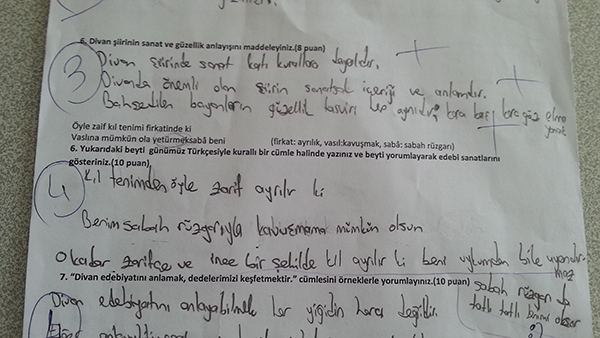 6. Divan şiirinin sanat ve güzellik anlayışını maddeleyiniz.(8 puan)
3
Divan şiirinde sanat katı kurallara dayalıdır.
Divanda önemli olan şiirin sanatsal içeriği ve anlamıdır.
Bahsedilen bayanların güzellik tasviri hep aynıdır; kara kaş kara göz elma yanak
Öyle zaif kıl tenimi firkatinde ki
Vaslına mümkün ola yetürmeksabâ beni (firkat: ayrılık, vasıl:kavuşmak, sabâ: sabah rüzgarı)
6. Yukarıdaki beyti günümüz Türkçesiyle kurallı bir cümle halinde yazınız ve beyti yorumlayarak edebi sanatlarını
gösteriniz.(10 puan)
4
Kıl tenimden öyle zarif ayrılır ki
Benim sabah rüzgarıyla kavuşmama mümkün olsun
O kadar zarifçe ve ince bir şekilde kıl ayrılır ki beni uykumdan bile uyandırmaz
7. "Divan edebiyatını anlamak, dedelerimizi keşfetmektir." cümlesini örneklerle yorumlayınız.(10 puan)
sabah rüzgarı da
tatlı tatlı burnumu okşar
Divan edebiyatını anlayabilmek her yiğidin harcı değildir.